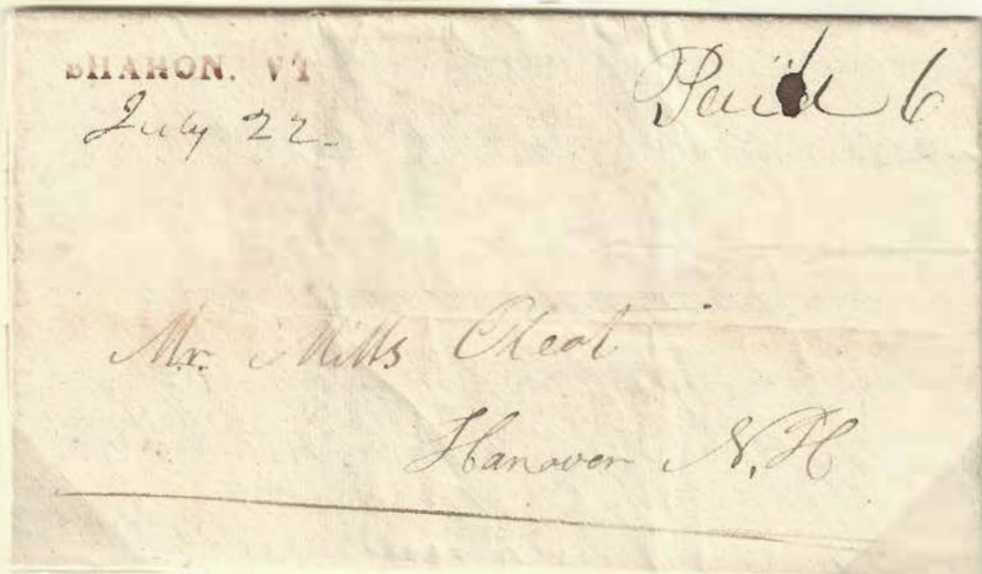 SHARON. VT
July 22.
Paid 6
Mr. Mills Olcott
Hanover N.H